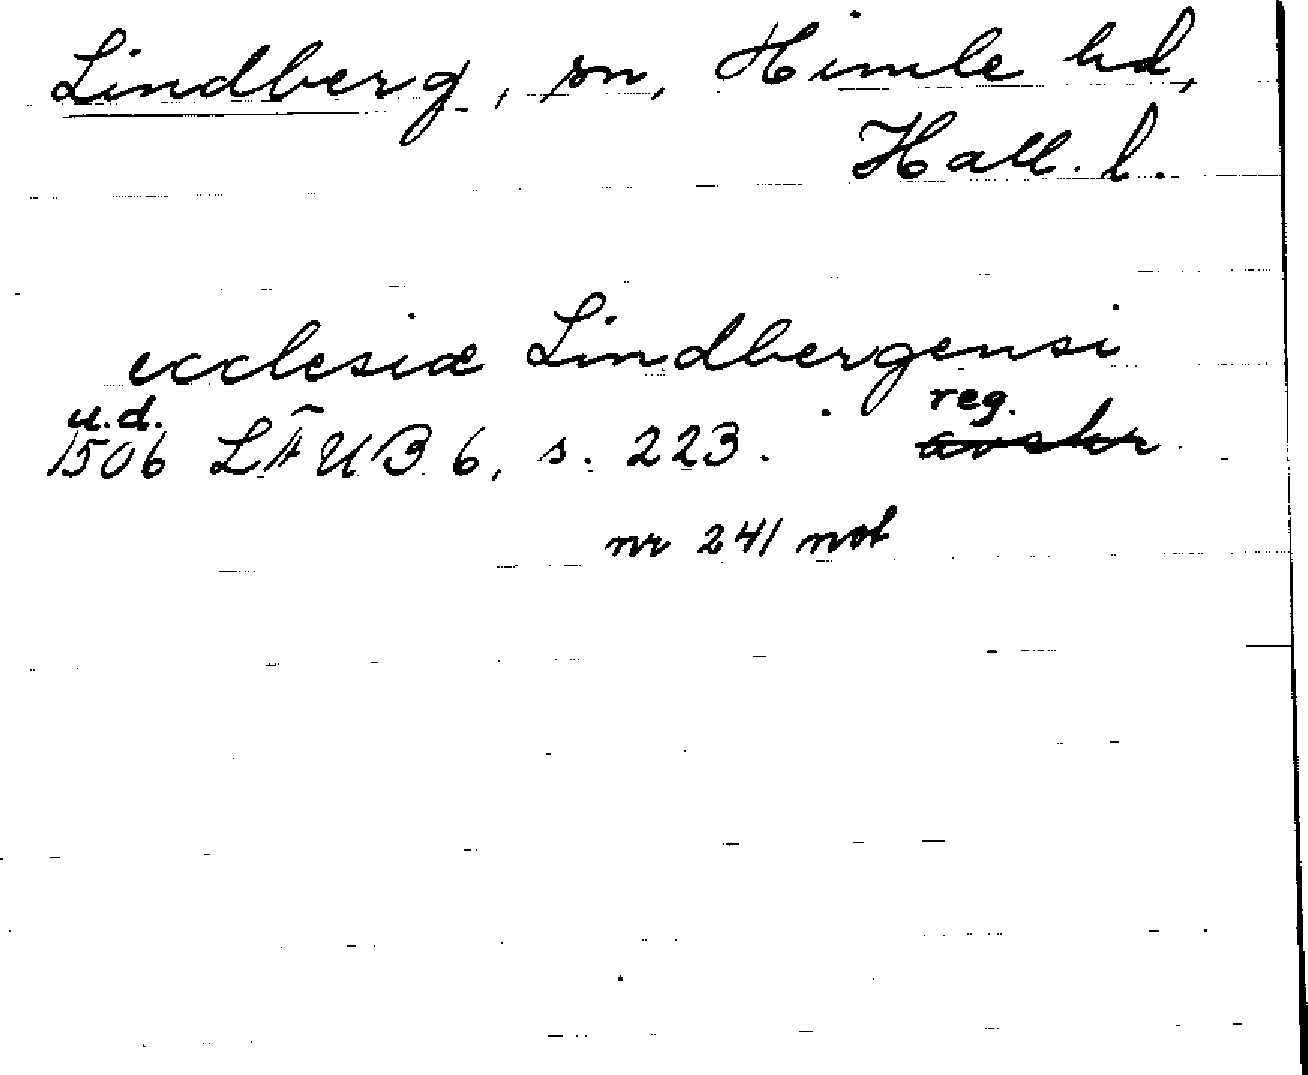 Lindberg, sn, Himle hd,
Hall. l.
ecclesiæ Lindbergensi
u.d. reg.
1506 LÄUB 6, s. 223. avskr
nr 241 not